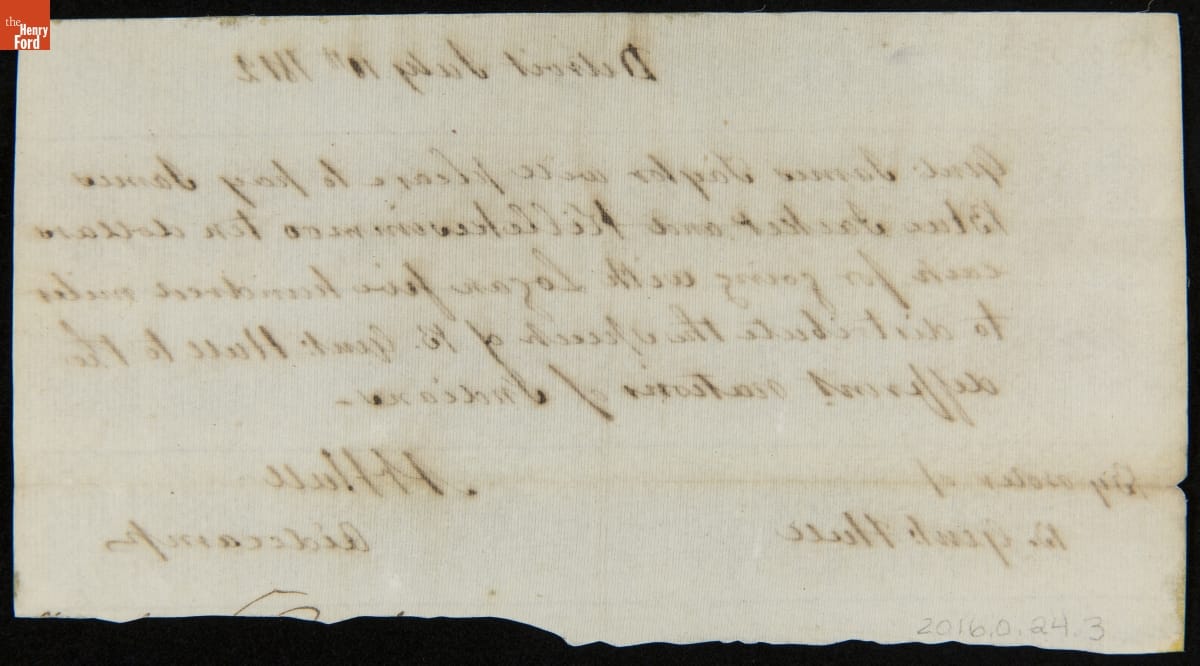 the
Henry
Ford
Detroit July 10th 1812
Genl. James Taylor will please to pay James
Blue Jacket and ten dollars
each for going with Logan five hundred miles
to distribute the speech of B. Genl. Hull to the
different nations of Indians.
By order of
B. Genl. Hull
Hull
Aidecamp
2016.0.24.3